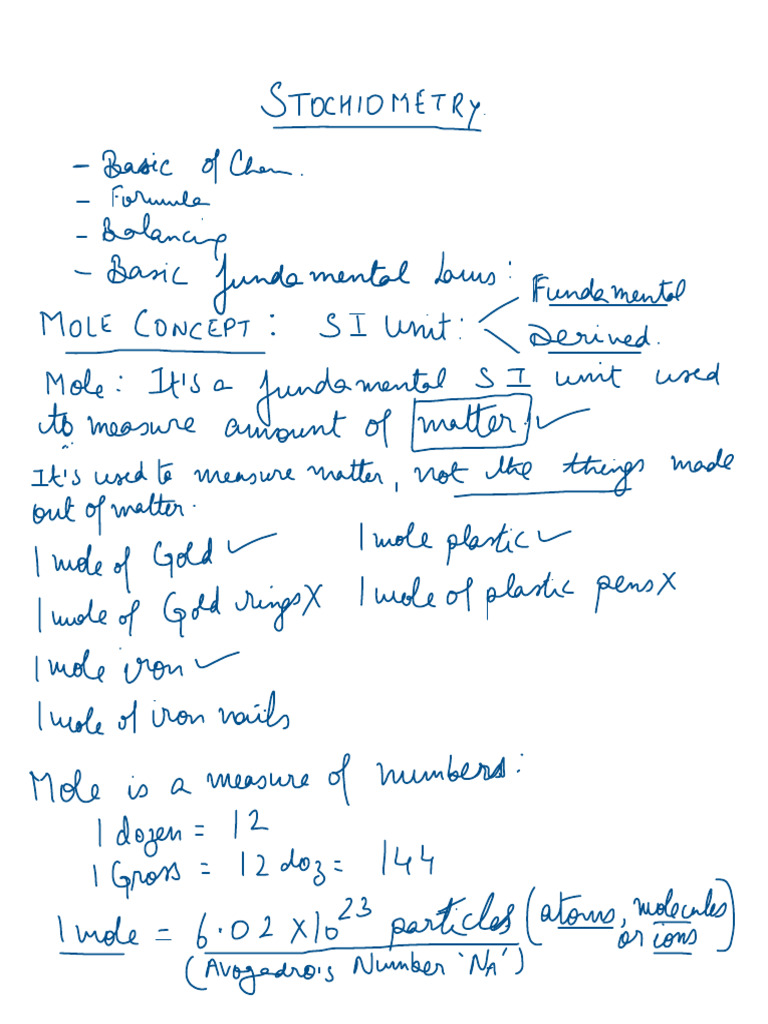 STOCHIOMETRY
- Basic of Chem.
- Formula
- Balancing
- Basic fundamental Laws:
MOLE CONCEPT: SI Unit: Fundamental
Derived.
Mole: It's a fundamental SI unit used
to measure amount of matter. ✓
It's used to measure matter, not the things made
out of matter.
1 mole of Gold ✓ 1 mole plastic ✓
1 mole of Gold rings X 1 mole of plastic pens X
1 mole iron ✓
1 mole of iron nails
Mole is a measure of numbers:
1 dozen = 12
1 Gross = 12 doz = 144
1 mole = 6.02 X 10²³ particles (atoms, molecules
or ions)
(Avogadro's Number 'NA')